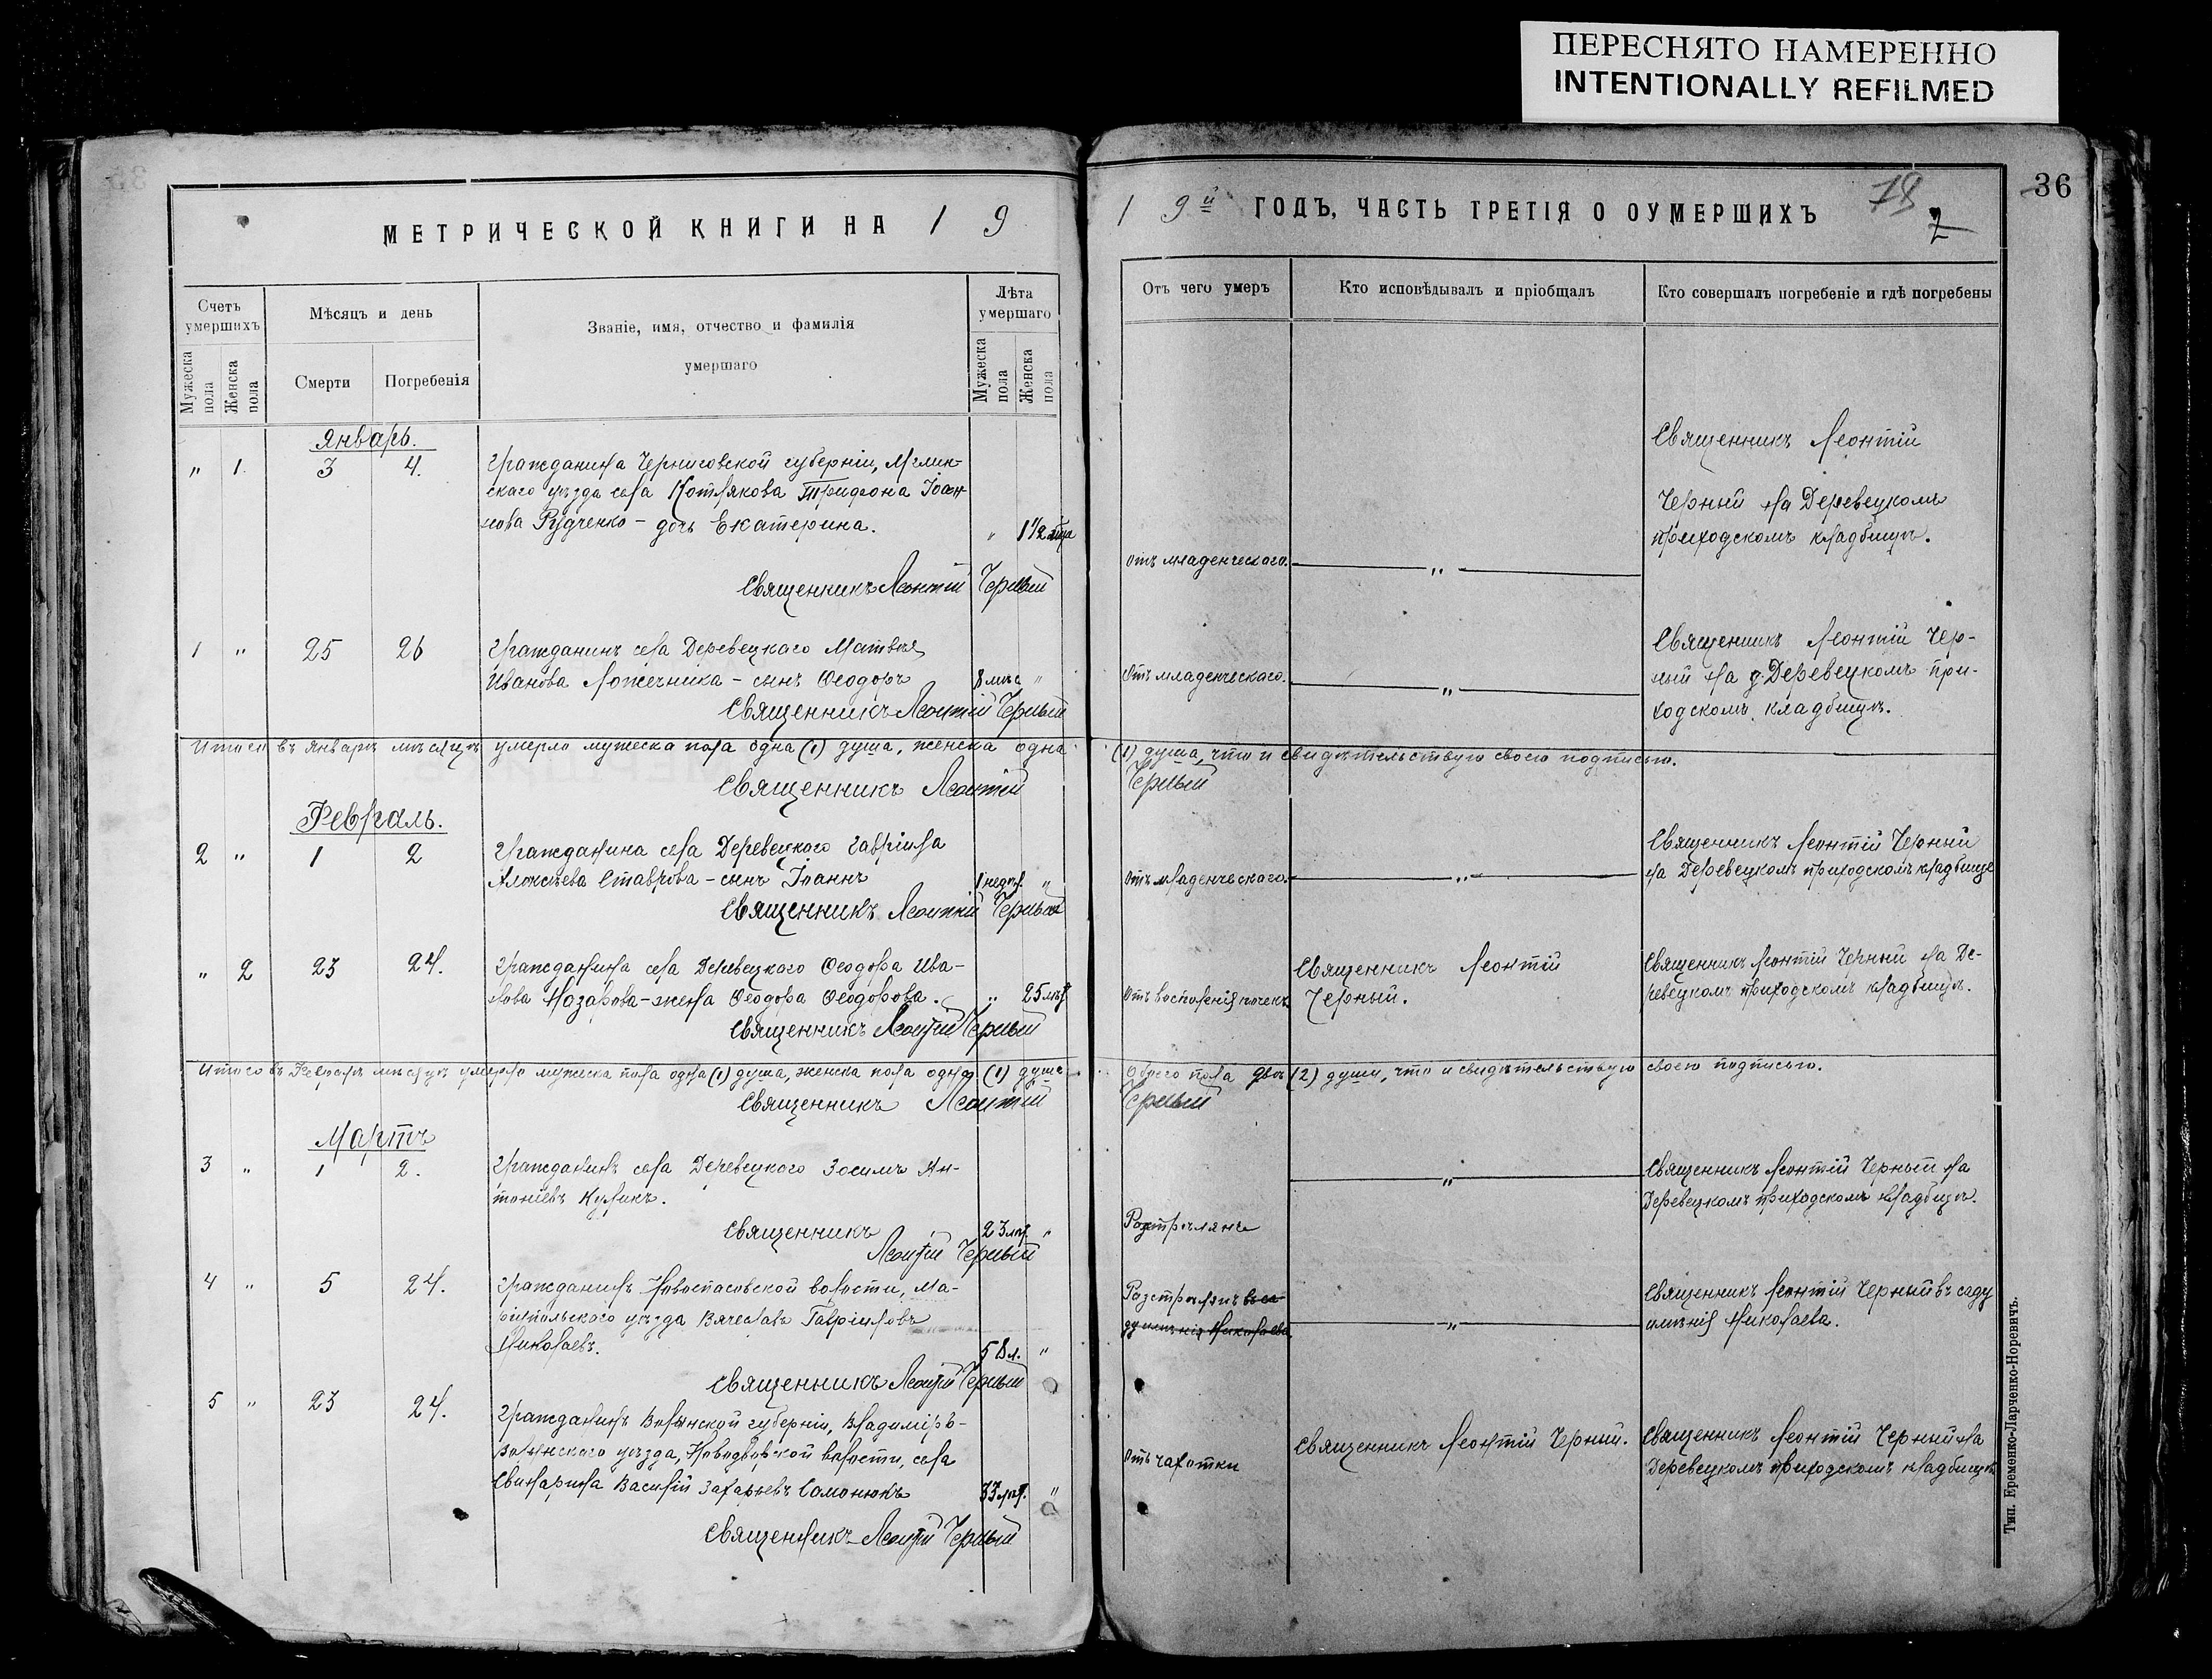 ПЕРЕСНЯТО НАМЕРЕННО
INTENTIONALLY REFILMED
36
МЕТРИЧЕСКОЙ КНИГИ НА 1 9
Счетъ умершихъ
Мужеска пола
Женска пола
Мѣсяцъ и день
Смерти
Погребенія
Званіе, имя, отчество и фамилія
умершаго
Лѣта умершаго
Мужеска пола
Женска пола
Январь.
" 1. 3 4. Гражданина Черниговской губерніи, Мглин-
скаго уѣзда села Котлякова Трифона Іоан-
нова Рудченко - дочь Екатерина. " 1 1/2
Священникъ Леонтій Черный
1 " 25 26 Гражданинъ села Деревецкаго Матвѣя
Иванова Ложечника - сынъ Ѳеодоръ 8 мѣс "
Священникъ Леонтій Черный
Итого въ Январѣ мѣсяцѣ умерло мужеска пола одна (1) душа, женска одна
Священникъ Леонтій
Февраль.
2 " 1 2 Гражданина села Деревецкого Гавріила
Алексѣева Ставрова - сынъ Іоаннъ 1 недѣл. "
Священникъ Леонтій Черный
" 2 23 24. Гражданина села Деревецкого Ѳеодора Ива-
нова Назарова - жена Ѳеодора Ѳеодорова. " 25 лѣт
Священникъ Леонтій Черный
Итого въ Февралѣ мѣсяцѣ умерло мужеска пола одна (1) душа, женска пола одна (1) душа
Священникъ Леонтій
Мартъ
3 " 1 2. Гражданинъ села Деревецкого Зосимъ Ан-
тоніевъ Куликъ.
Священникъ 23 лѣт. "
Леонтій Черный
4 " 5 24. Гражданинъ Новоспасовской волости, Ма-
ріупольского уѣзда Вячеславъ Гавріиловъ
Николаевъ. 58 л. "
Священникъ Леонтій Черный
5 " 23 24. Гражданинъ Волынской губерніи, Владиміръ-
волынского уѣзда, Новодворской волости, села
Свинарина Василій Захарьевъ Самонюкъ 33 лѣт. "
Священникъ Леонтій Черный
1 9й ГОДЪ, ЧАСТЬ ТРЕТІЯ О ОУМЕРШИХЪ 78
2
Отъ чего умеръ
Кто исповѣдывалъ и пріобщалъ
Кто совершалъ погребеніе и гдѣ погребены
Священникъ Леонтій
Черный на Деревецкомъ
приходскомъ кладбищѣ.
отъ младенческаго. "
Священникъ Леонтій Чер-
ный на д. Деревецкомъ при-
ходскомъ кладбищѣ.
Отъ младенческаго. "
(1) душа, что и свидѣтельствую своею подписью.
Черный
Священникъ Леонтій Черный
на Деревецкомъ приходскомъ кладбище
отъ младенческаго. "
Отъ воспаленія почекъ
Священникъ Леонтій
Черный.
Священникъ Леонтій Черный на Де-
ревецкомъ приходскомъ кладбищѣ.
Обоего пола двѣ (2) души, что и свидѣтельствую своею подписью.
Черный
Разстрѣлянъ
"
Священникъ Леонтій Черный на
Деревецкомъ приходскомъ кладбищѣ.
Разстрѣлянъ въ са-
ду имѣнія Николаева
"
Священникъ Леонтій Черный въ саду
имѣнія Николаева.
Отъ чахотки
Священникъ Леонтій Черный.
Священникъ Леонтій Черный на
Деревецкомъ приходскомъ кладбищѣ
Тип. Еременко-Ларченко-Норевичъ.